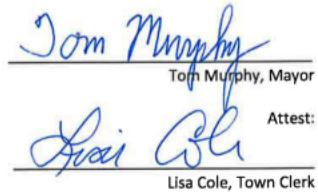 Tom Murphy
Tom Murphy, Mayor
Attest:
Lisa Cole
Lisa Cole, Town Clerk